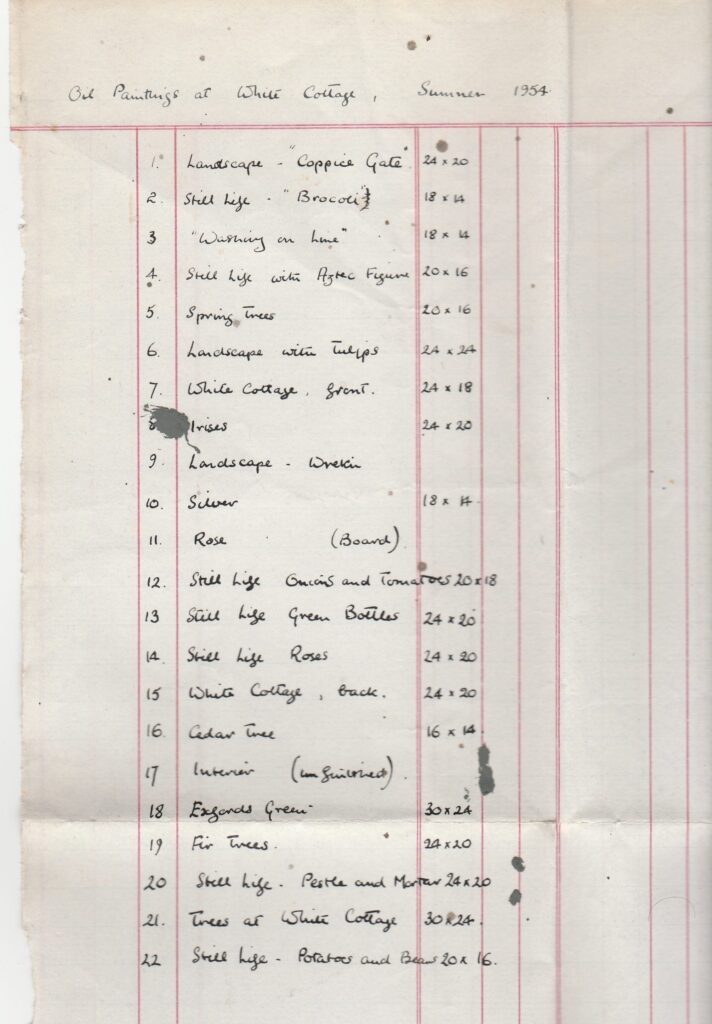 Oil Paintings at White Cottage, Summer 1954
1. Landscape - "Coppice Gate" 24 x 20
2. Still Life - "Brocoli" 18 x 14
3 "Washing on Line" 18 x 14
4. Still Life with Aztec Figure 20 x 16
5. Spring Trees 20 x 16
6. Landscape with Tulips 24 x 24
7. White Cottage, front. 24 x 18
8 Irises 24 x 20
9. Landscape - Wrekin
10. Silver 18 x 14
11. Rose (Board)
12. Still Life Onions and Tomatoes 20 x 18
13 Still Life Green Bottles 24 x 20
14. Still Life Roses 24 x 20
15 White Cottage, back. 24 x 20
16. Cedar Tree 16 x 14
17 Interior (unfinished).
18 Exfords Green 30 x 24
19 Fir Trees. 24 x 20
20 Still Life - Pestle and Mortar 24 x 20
21. Trees at White Cottage 30 x 24.
22 Still Life - Potatoes and Beans 20 x 16.